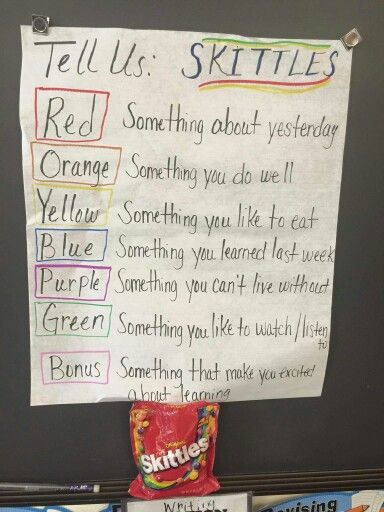 Tell Us: SKITTLES
Red Something about yesterday
Orange Something you do well
Yellow Something you like to eat
Blue Something you learned last week
Purple Something you can't live without
Green Something you like to watch/listen
to
Bonus Something that make you excited
about learning
Skittles
Writing